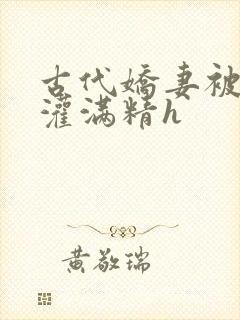 古代嬌妻被
灌满精h
黄敬瑞